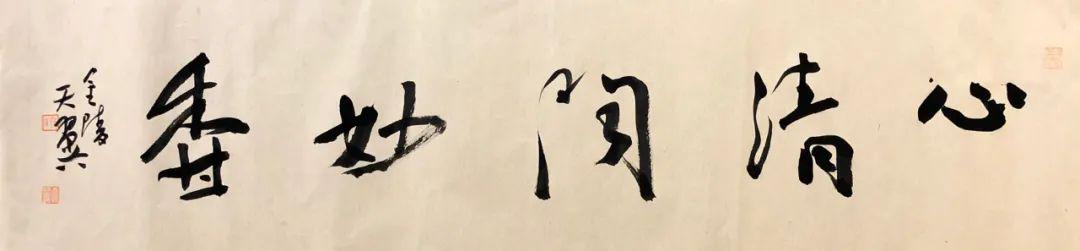 心清闻妙香
金陵
天翼